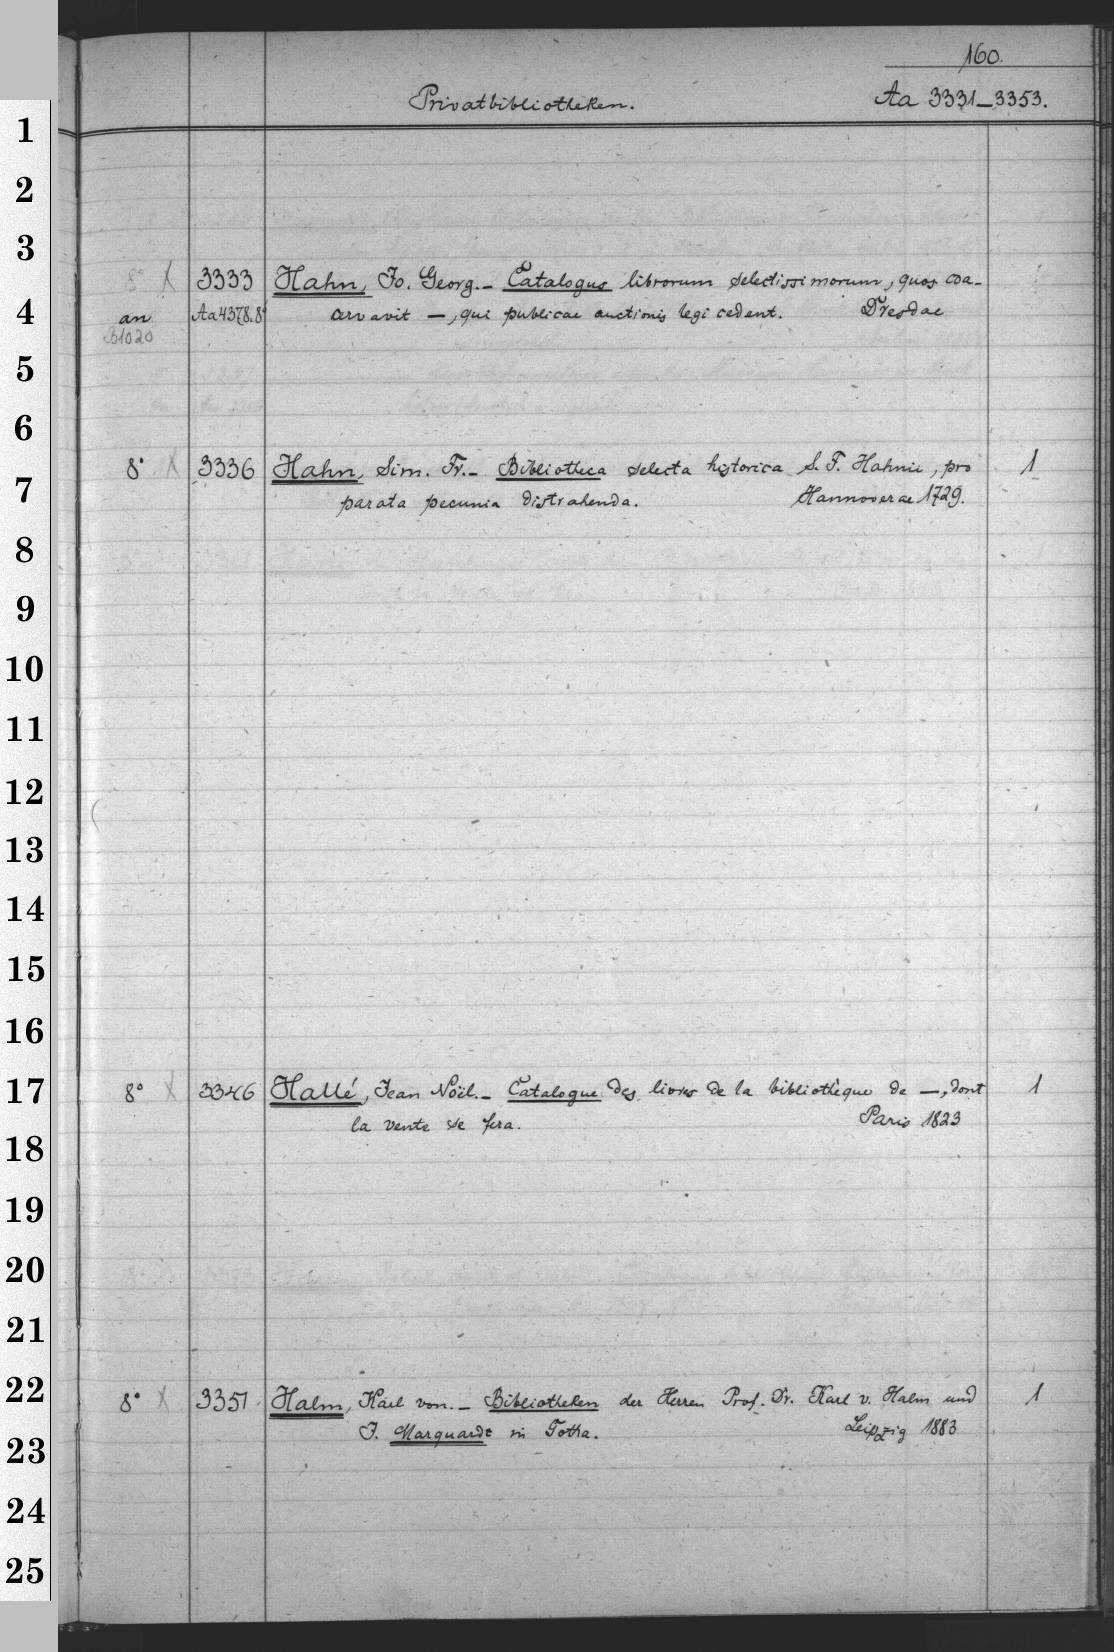 160.
Privatbibliotheken. Aa 3331-3353.
1
2
3
8° X 3333 Hahn, Jo. Georg. - Catalogus librorum selectissimorum, quos coa-
4
an Aa4378.8° cervavit —, qui publicae auctionis legi cedent. Dresdae
B1020
5
6
8° X 3336 Hahn, Sim. Fr. - Bibliotheca selecta historica S. F. Hahnii, pro 1
7
parata pecunia distrahenda. Hannoverae 1729.
8
9
10
11
12
13
14
15
16
17
8° X 3346 Hallé, Jean Noël. - Catalogue des livres de la bibliothèque de —, dont 1
la vente se fera. Paris 1823
18
19
20
21
22
8° X 3351. Halm, Karl von. - Bibliotheken der Herren Prof. Dr. Karl v. Halm und 1
J. Marquardt in Gotha. Leipzig 1883
23
24
25